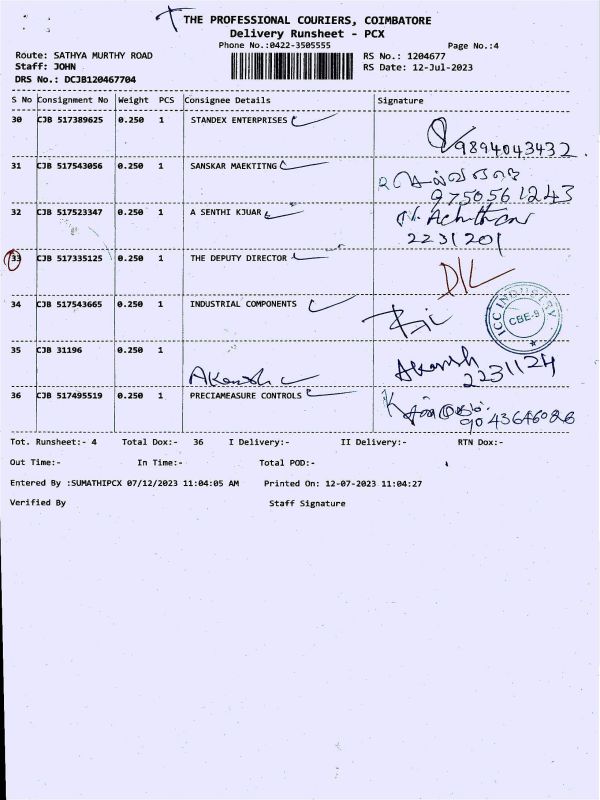 THE PROFESSIONAL COURIERS, COIMBATORE
Delivery Runsheet - PCX
Phone No.:0422-3505555
Page No.:4
Route: SATHYA MURTHY ROAD
RS No.: 1204677
Staff: JOHN
RS Date: 12-Jul-2023
DRS No.: DCJB120467704
S No Consignment No Weight PCS Consignee Details Signature
30 CJB 517389625 0.250 1 STANDEX ENTERPRISES
9894043432
31 CJB 517543056 0.250 1 SANSKAR MAEKTITNG
9750561243
32 CJB 517523347 0.250 1 A SENTHI KJUAR
2231201
33 CJB 517335125 0.250 1 THE DEPUTY DIRECTOR
D/L
34 CJB 517543665 0.250 1 INDUSTRIAL COMPONENTS
ICC INDUSTRY
CBE-9
35 CJB 31196 0.250 1
Akansh
Akansh
2231124
36 CJB 517495519 0.250 1 PRECIAMEASURE CONTROLS
9043646086
Tot. Runsheet:- 4 Total Dox:- 36 I Delivery:- II Delivery:- RTN Dox:-
Out Time:- In Time:- Total POD:-
Entered By :SUMATHIPCX 07/12/2023 11:04:05 AM Printed On: 12-07-2023 11:04:27
Verified By Staff Signature